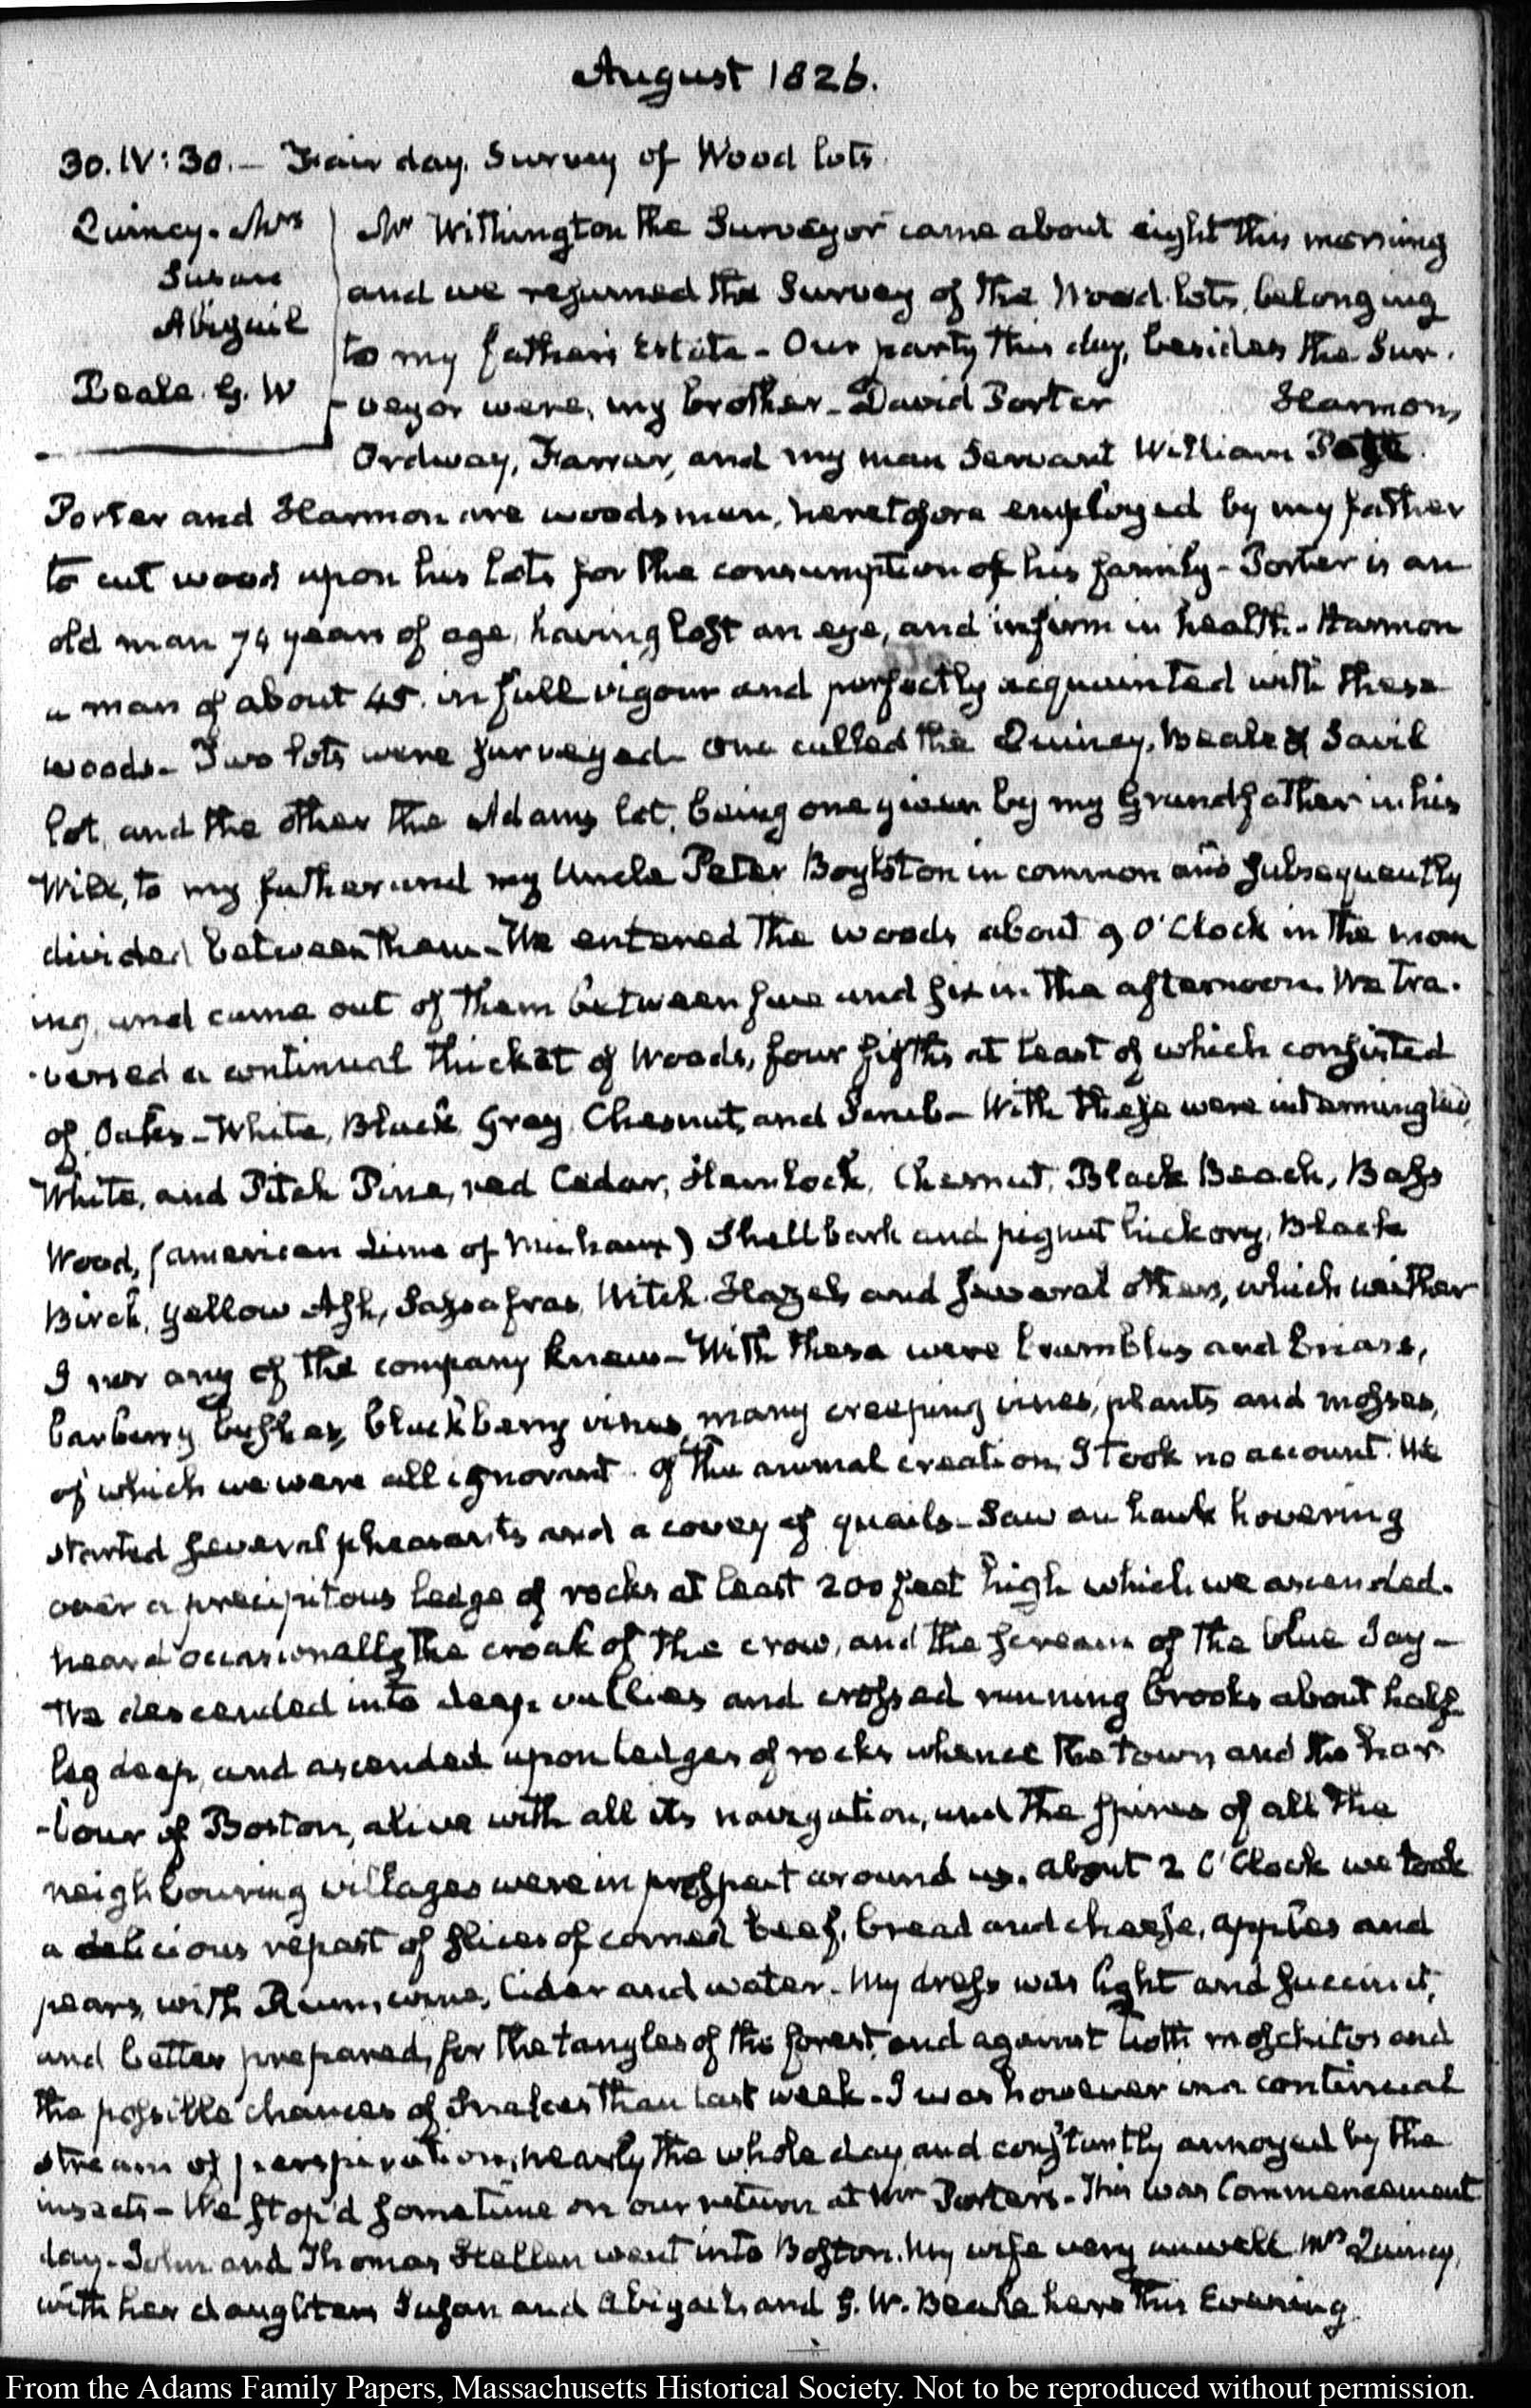 August 1826.
30. IV: 30. — Fair day. Survey of Wood lots
Quincy. Mrs
Susan
Abigail
Beale. G. W
Mr Withington the Surveyor came about eight this morning
and we resumed the Survey of the Wood lots, belonging
to my father's Estate — Our party this day, besides the Sur-
-veyor were, my brother — David Porter Harmon,
Ordway, Farrar, and my man Servant William
Porter and Harmon are woodsmen, heretofore employed by my father
to cut wood upon his lots for the consumption of his family — Porter is an
old man 74 years of age, having lost an eye, and infirm in health — Harmon
a man of about 45. in full vigour and perfectly acquainted with these
woods — Two lots were surveyed — One called the Quincy, Beale & Savil
lot, and the other the Adams lot, being one given by my Grandfather in his
Will, to my father and my Uncle Peter Boylston in common and subsequently
divided between them — We entered the woods about 9 O'Clock in the morn
ing, and came out of them between five and six in the afternoon. We tra-
-versed a continual thicket of Woods, four fifths at least of which consisted
of Oaks — White, Black, Gray, Chesnut, and Scrub — With these were intermingled
White, and Pitch Pine, red Cedar, Hemlock, Chesnut, Black Beach, Bass
Wood, (american Lime of Michaux) Shellbark and pignut hickory, Black
Birch, yellow Ash, Sassafras, Witch Hazel, and several others, which neither
I nor any of the company knew — With these were brambles and briars,
barberry bushes, blackberry vines, many creeping vines, plants and mosses,
of which we were all ignorant. Of the animal creation, I took no account. We
started several pheasants and a covey of quails — Saw an hawk hovering
over a precipitous ledge of rocks at least 200 feet high which we ascended.
heard occasionally the croak of the crow, and the scream of the blue Jay —
We descended into deep vallies and crossed running brooks about half
leg deep, and ascended upon ledges of rocks whence the town and the har
-bour of Boston, alive with all its navigation, and the spires of all the
neighbouring villages were in prospect around us. About 2 O'Clock we took
a delicious repast of slices of corned beef, bread and cheese, apples and
pears, with Rum, wine, Cider and water. My dress was light and succinct,
and better prepared, for the tangles of the forest, and against both moschitos and
the possible chances of Snakes than last week — I was however in a continual
stream of perspiration, nearly the whole day, and constantly annoyed by the
insects — We stop'd sometime on our return at Mr Porter's — This was Commencement
day — John and Thomas Hellen went into Boston. My wife very unwell. Mrs Quincy,
with her daughters Susan and Abigail, and G. W. Beale here this Evening
From the Adams Family Papers, Massachusetts Historical Society. Not to be reproduced without permission.